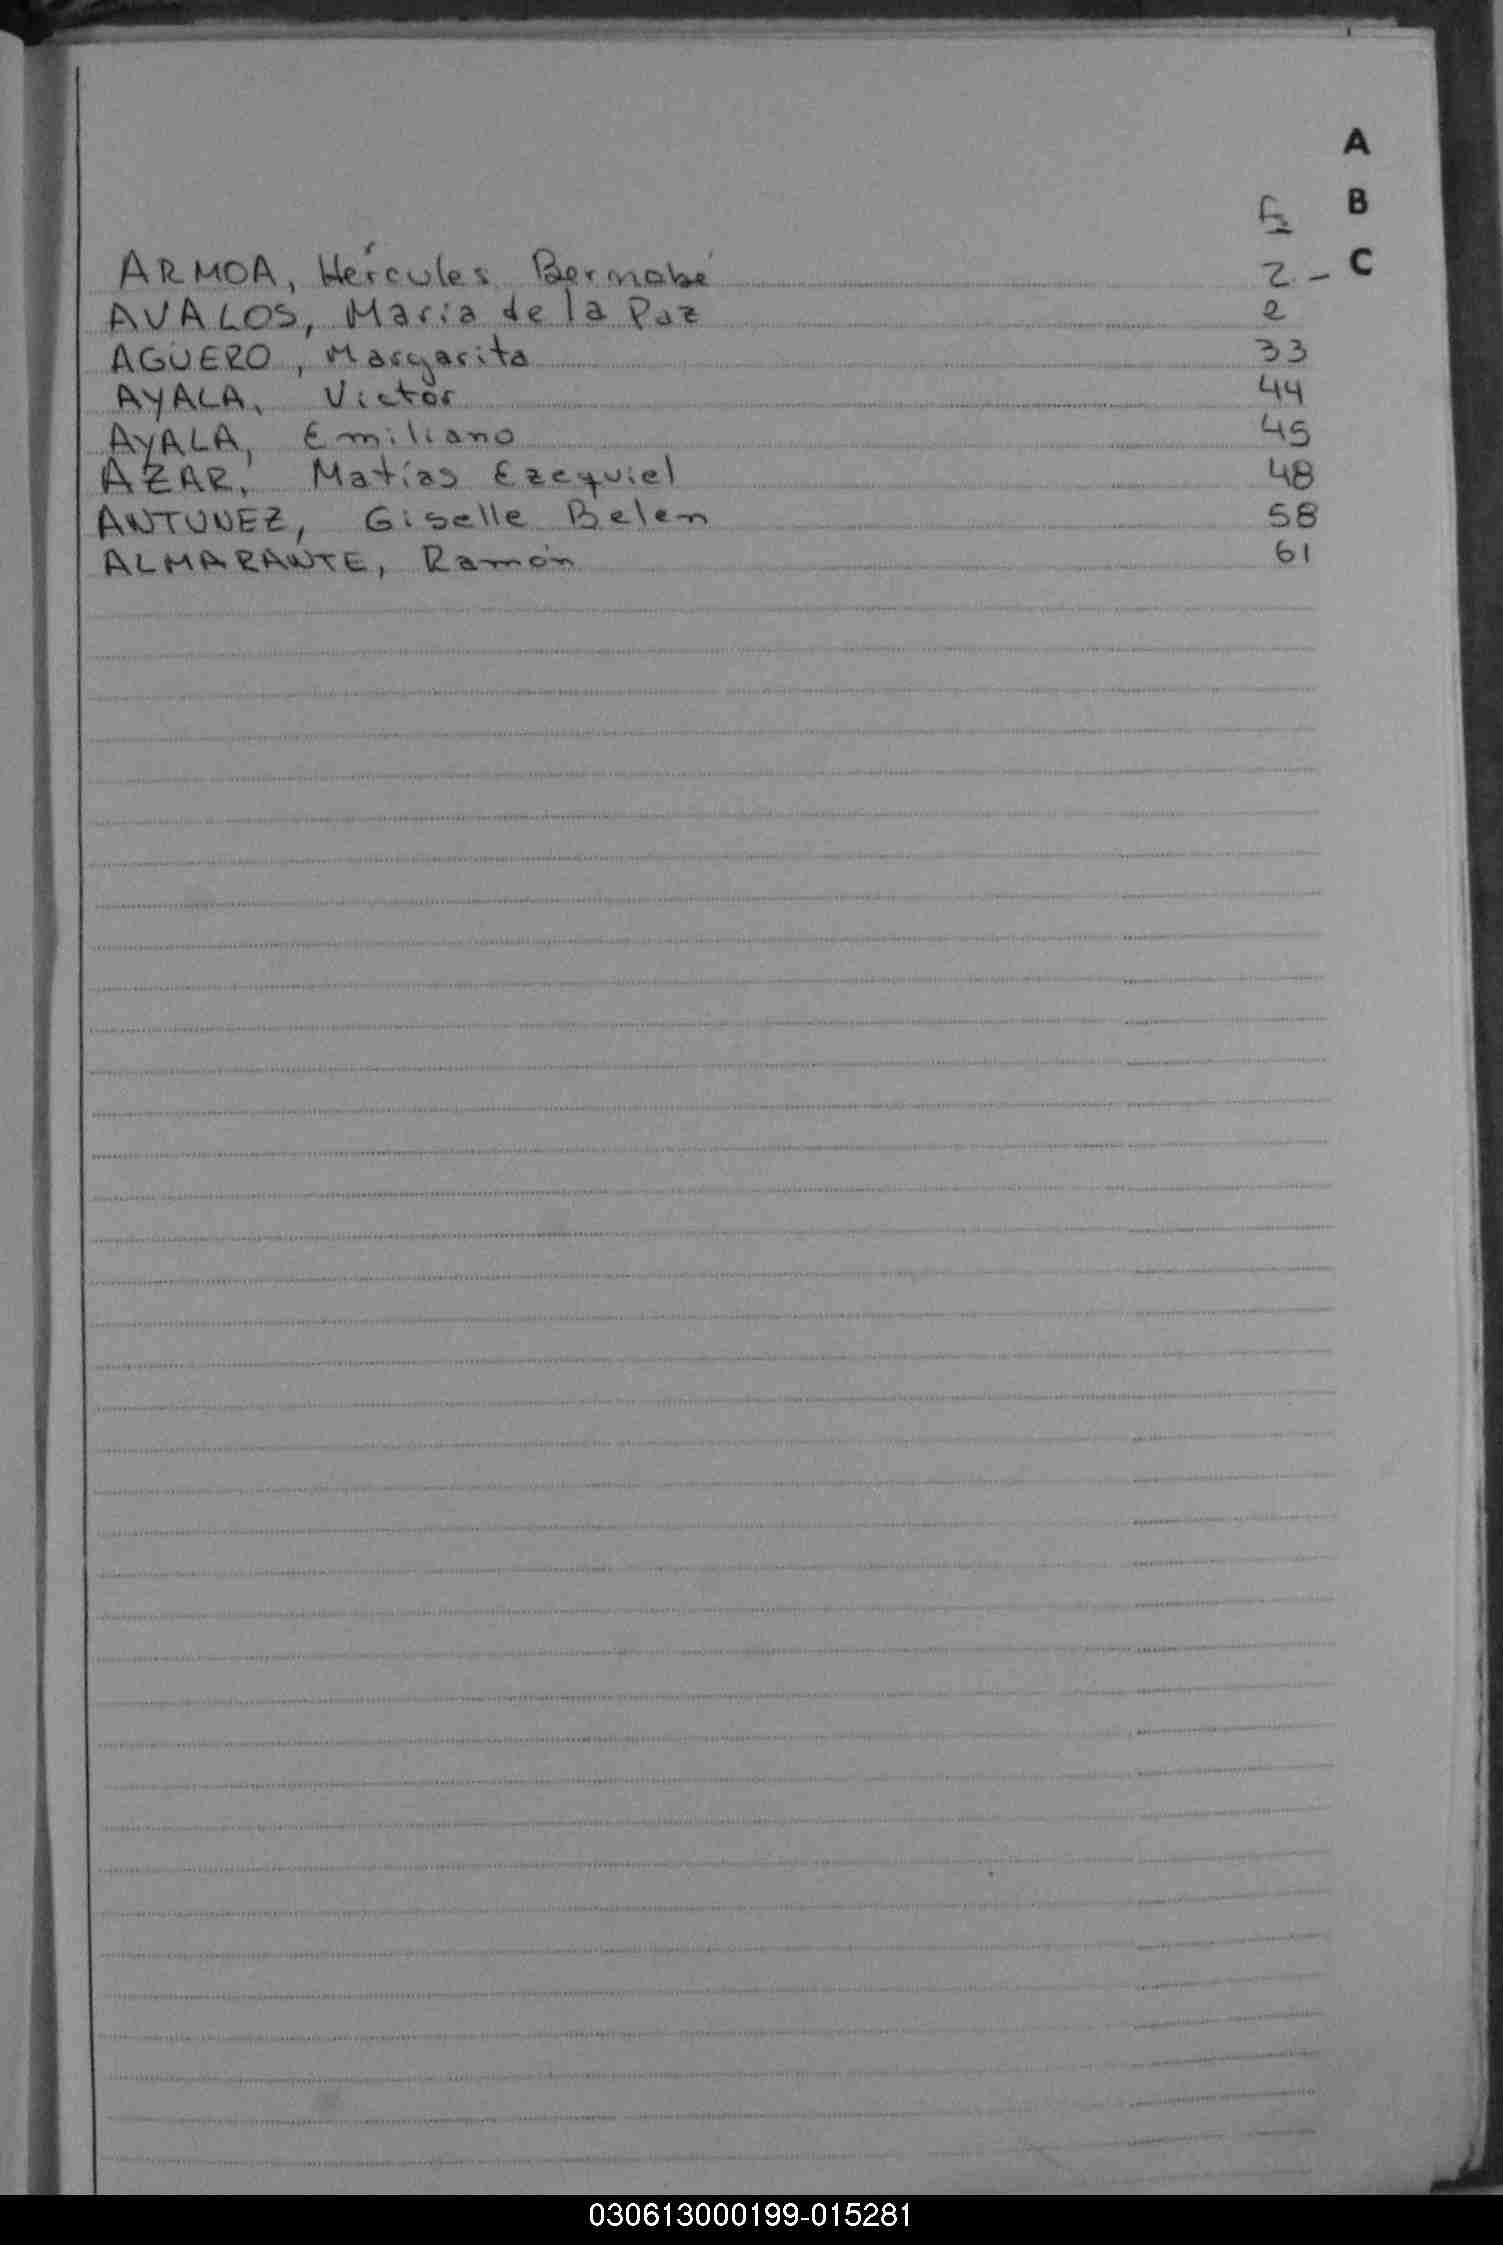 A
B
Fs
ARMOA, Hércules Bernabé 2 - C
AVALOS, María de la Paz 2
AGÜERO, Margarita 33
AYALA, Victor 44
AYALA, Emiliano 45
AZAR, Matías Ezequiel 48
ANTUNEZ, Giselle Belen 58
ALMARANTE, Ramón 61
030613000199-015281